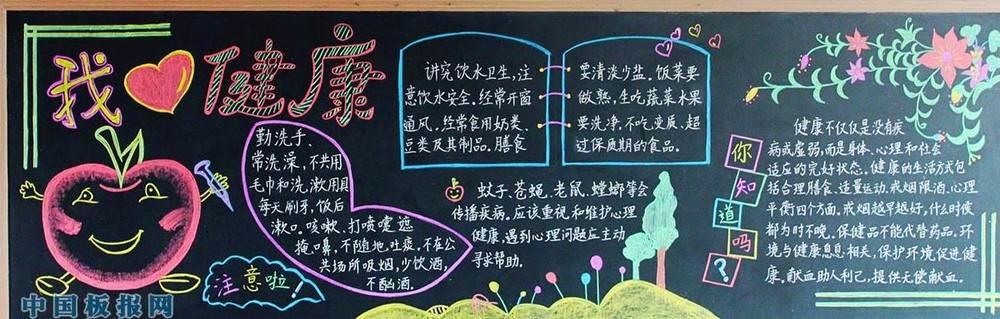 我 健康
勤洗手、
常洗澡，不共用
毛巾和洗、漱用具
每天刷牙，饭后
漱口。咳嗽、打喷嚏遮
掩口鼻，不随地吐痰，不在公
共场所吸烟，少饮酒，
不酗酒。
注意啦！
讲究饮水卫生，注
意饮水安全。经常开窗
通风，经常食用奶类、
豆类及其制品。膳食
要清淡少盐。饭菜要
做熟，生吃蔬菜水果
要洗净，不吃变质、超
过保质期的食品。
蚊子、苍蝇、老鼠、蟑螂等会
传播疾病。应该重视和维护心理
健康，遇到心理问题应主动
寻求帮助。
你
知
道
吗
？
健康不仅仅是没有疾
病或虚弱，而是身体、心理和社会
适应的完好状态。健康的生活方式包
括合理膳食、适量运动、戒烟限酒、心理
平衡四个方面。戒烟越早越好，什么时候
都为时不晚。保健品不能代替药品。环
境与健康息息相关，保护环境促进健
康。献血助人利己，提供无偿献血。
中国板报网